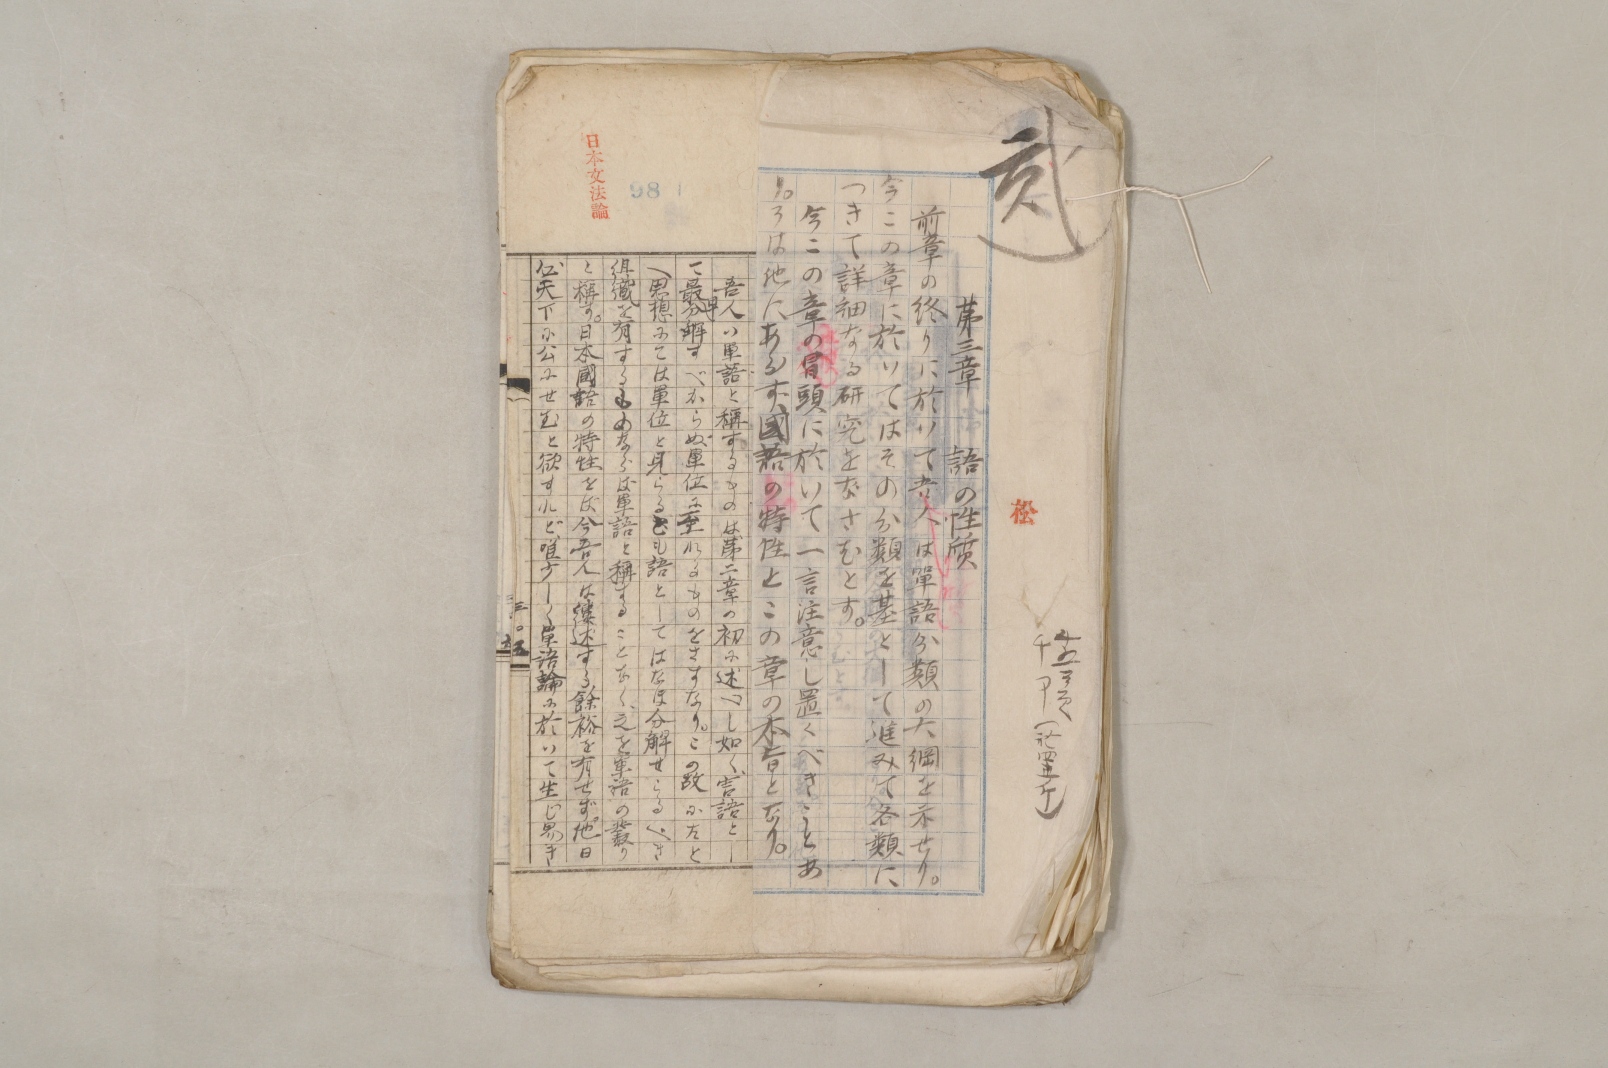 弐
松
第三章 語の性质
前章の終りに於いて吾人は單語分類の大綱を示せり。
今この章に於いてはその分類を基として進みて各類に
つきて詳細なる研究をなさむとす。
今この章の冒頭に於いて一言注意し置くべきことあ
り。そは他にあらず國語の特性とこの章の本旨となり。
吾人は單語と稱するものは第二章の初に述べし如く、言語とし
て最早分解すべからぬ單位に至れるものをさすなり。この故にたと
へ思想にては單位と見らるとも語としてはなほ分解せらるべき
組織を有するものならば單語と稱することなく、之を單語の叢り
と稱す。日本國語の特性をば今吾人は縷述する餘裕を有せず。他日
天下に公にせむと欲すれど唯少しく單語論に於いて生じ易き
日本文法論
98
三〇五